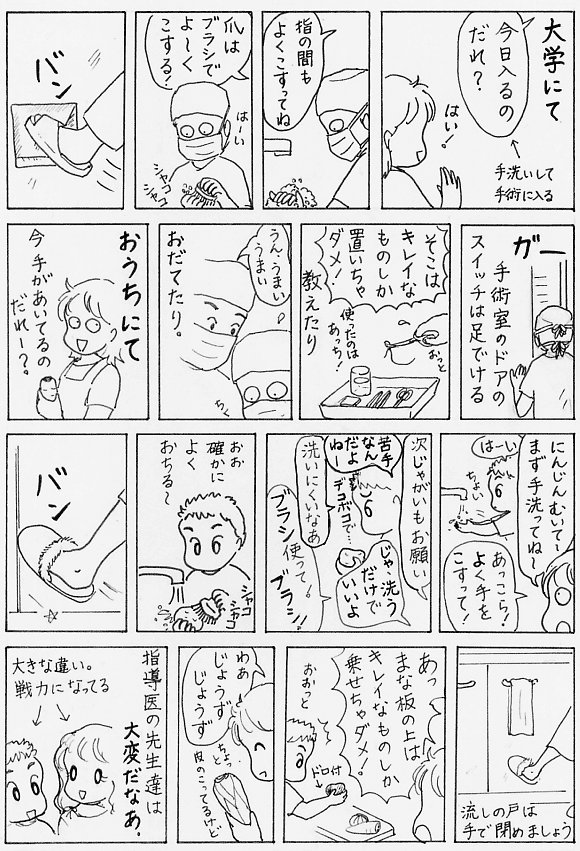 大学にて
今日入るの
だれ？
はい！
手洗いして
手術に入る
指の間も
よくこすってね
爪は
ブラシで
よ〜く
こする！
はーい
シャコ
シャコ
バン
ガー
手術室のドアの
スイッチは足でける
そこは
キレイな
ものしか
置いちゃ
ダメ！
おっと
使ったのは
あっち！
教えたり
うん、うまい
うまい
おだてたり。
ちく
おうちにて
今手があいてるの
だれー？
にんじんむいて〜
まず手洗ってね〜
はーい
ちょい
あっこら！
よく手を
こすって！
次じゃがいもお願い
苦手
なん
だよ
ねー
デコボコで…
洗いにくいなあ
じゃ、洗う
だけで
いいよ
ブラシ使って。
ブラシ！！
おお
確かに
よく
おちる〜
シャコ
シャコ
バン
流しの戸は
手で閉めましょう
あっ
まな板の上は
キレイなものしか
乗せちゃダメ！
おおっと
ドロ付
わあ
じょうず
じょうず
ちょっ
と
皮のこってるけど
指導医の先生達は
大変だなあ。
大きな違い。
戦力になってる